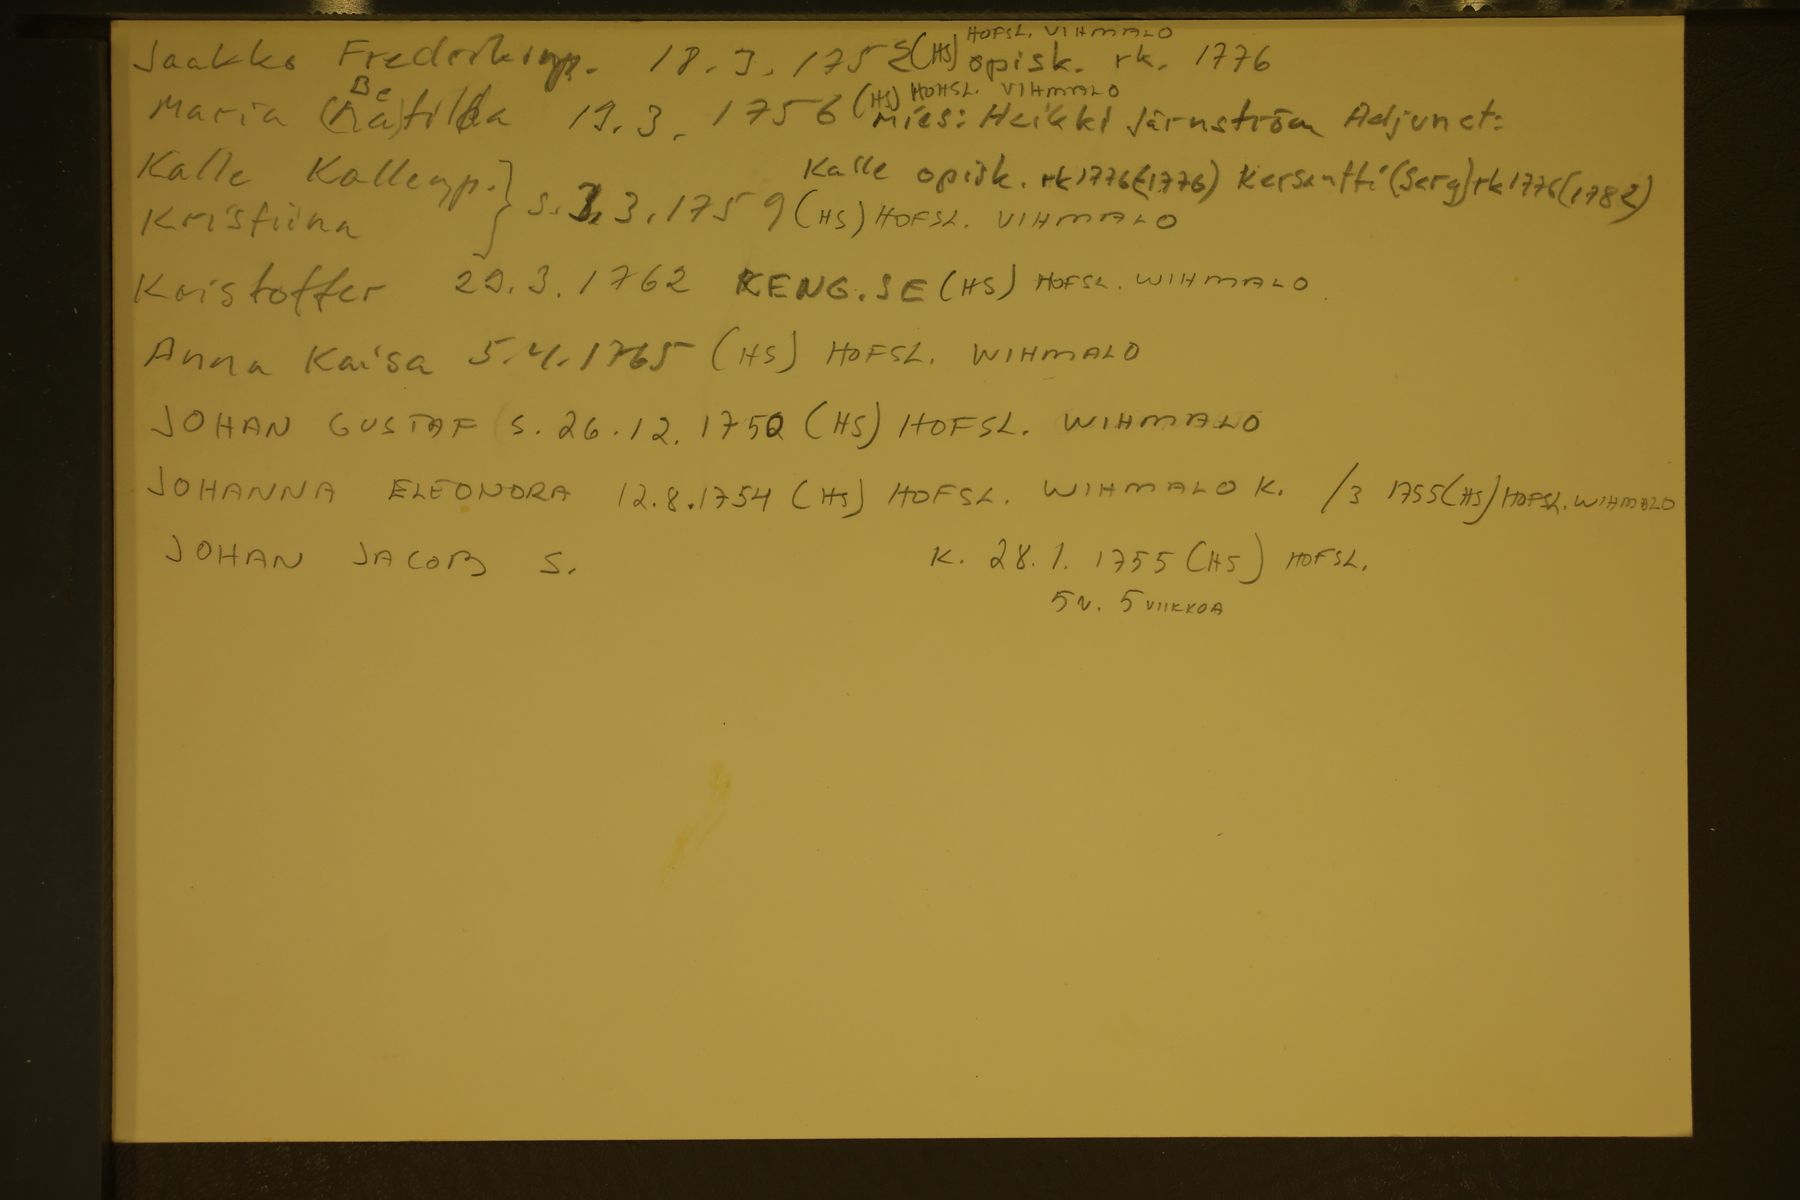 HOFSL. VIHMALO
Jaakko Frederikinp. 18.3.1752 (HS) opisk. rk. 1776
Be (HS) HOHSL. VIHMALO
Maria (Ma)tilda 19.3.1756 mies: Heikki Järnström Adjunct:
Kalle Kallenp. } Kalle opisk. rk 1776 (1776) Kersantti (Serg) rk 1776 (1782)
Kristiina s. 3.3.1759 (HS) HOFSL. VIHMALO
Kristoffer 29.3.1762 KENG.SE (HS) HOFSL. WIHMALO
Anna Kaisa 5.4.1765 (HS) HOFSL. WIHMALO
JOHAN GUSTAF S. 26.12.1750 (HS) HOFSL. WIHMALO
JOHANNA ELEONORA 12.8.1754 (HS) HOFSL. WIHMALO K. /3 1755 (HS) HOFSL. WIHMALO
JOHAN JACOB S. K. 28.1.1755 (HS) HOFSL.
5 V. 5 VIIKKOA